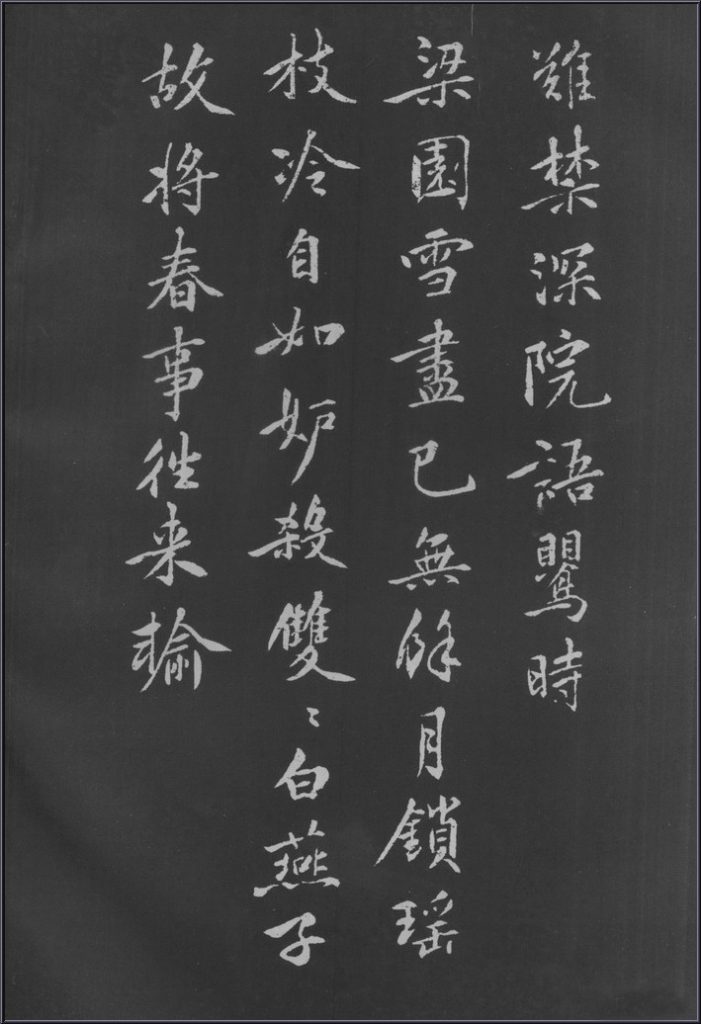 難禁深院語鸎時
梁園雪盡已無餘月鎖瑤
枝冷自如妒殺雙〻白燕子
故將春事往来輸